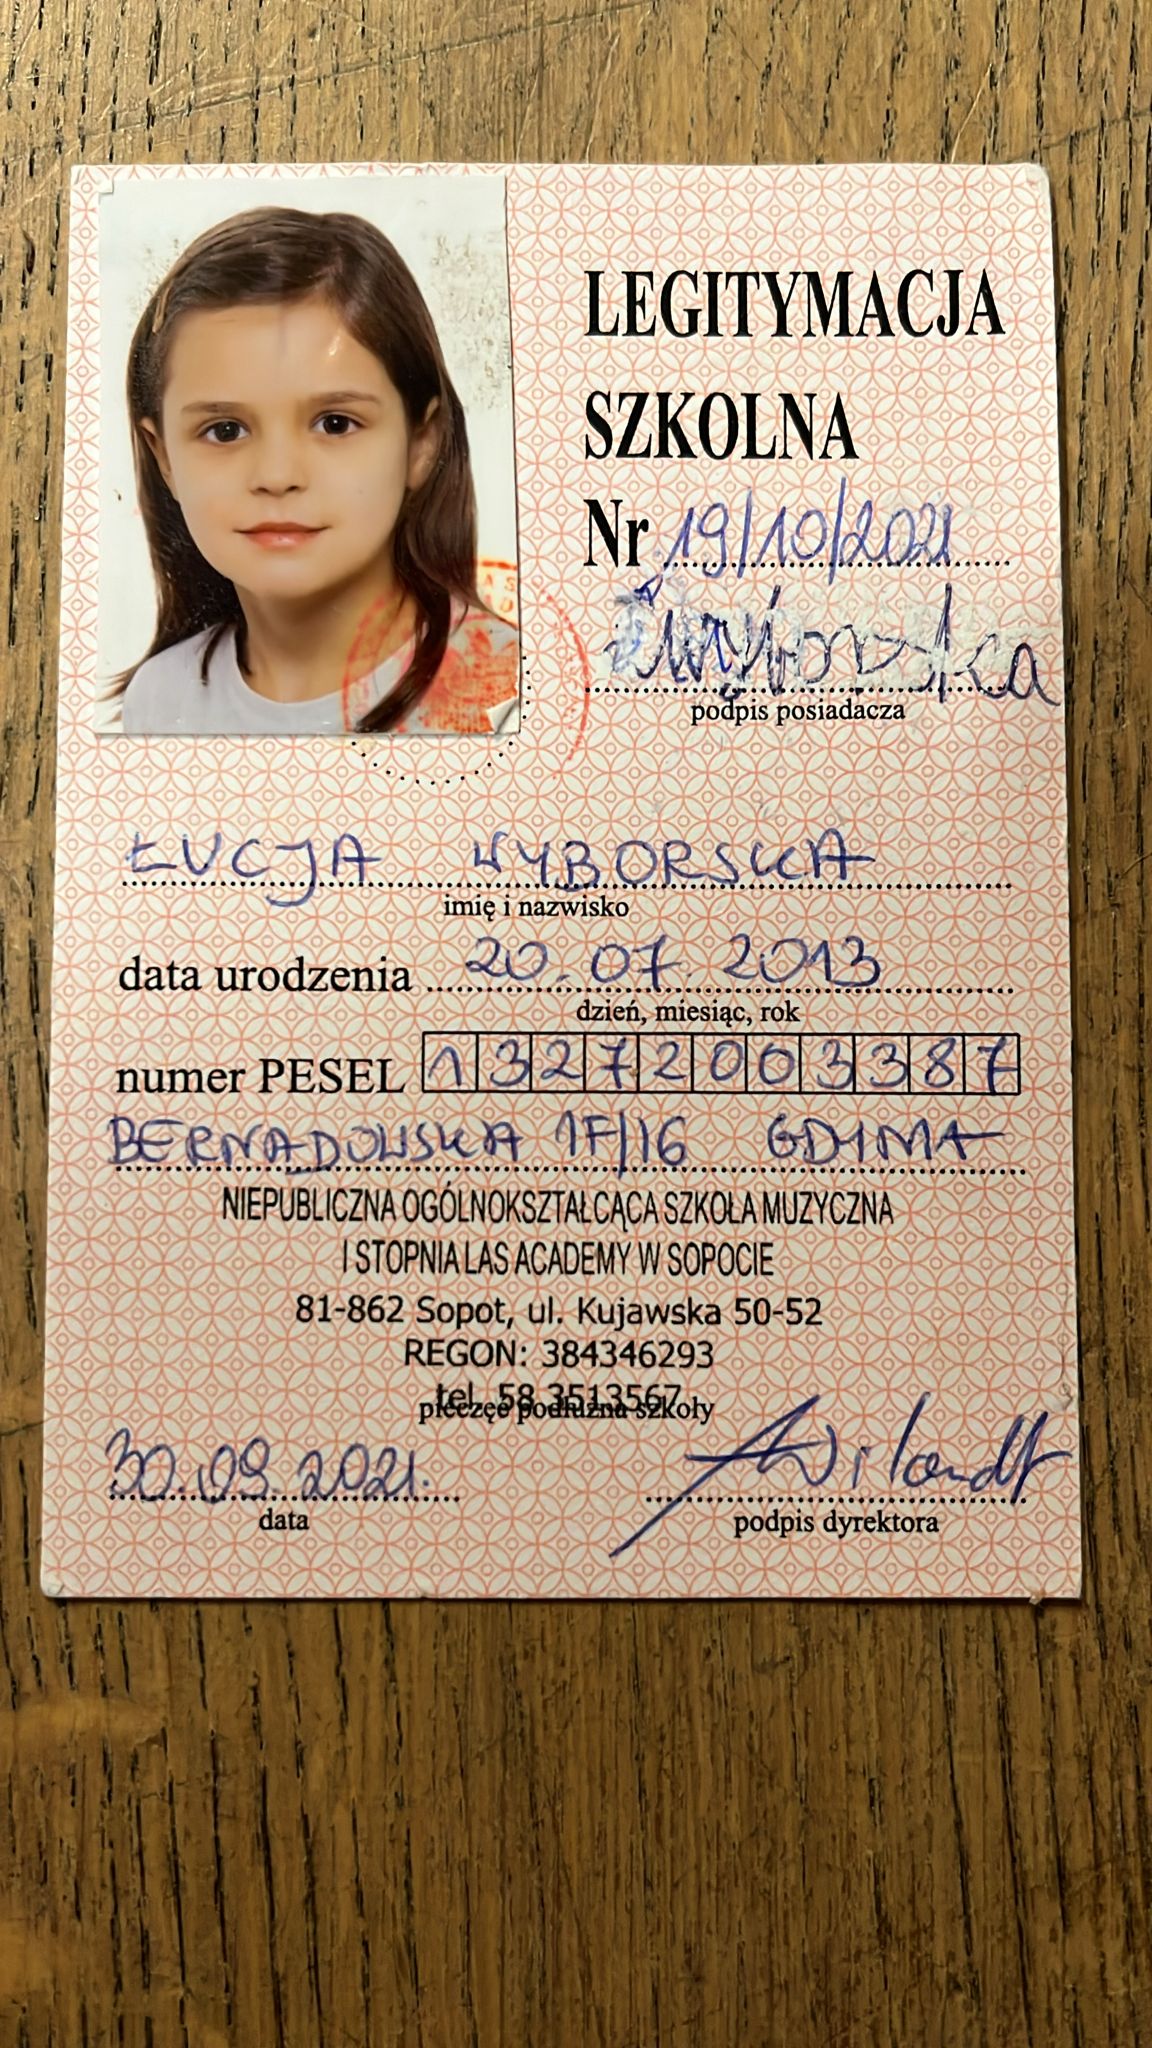 LEGITYMACJA
SZKOLNA
Nr 19/10/2021
podpis posiadacza
ŁUCJA WYBORSKA
imię i nazwisko
data urodzenia 20.07.2013
dzień, miesiąc, rok
numer PESEL 13272003387
BERNADOWSKA 1F/16 GDYNIA
NIEPUBLICZNA OGÓLNOKSZTAŁCĄCA SZKOŁA MUZYCZNA
I STOPNIA LAS ACADEMY W SOPOCIE
81-862 Sopot, ul. Kujawska 50-52
REGON: 384346293
tel. 58 3513567
pieczęć podłużna szkoły
30.09.2021.
data
podpis dyrektora